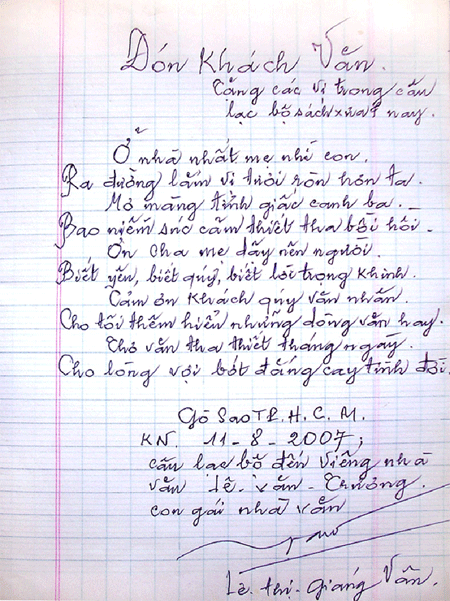 Đón Khách Văn.
Tặng các vị trong câu
lạc bộ sách xưa & nay.
Ở nhà nhất mẹ nhì con.
Ra đường lắm vị tươi ròn hơn ta.
Mơ màng tỉnh giấc canh ba.
Bao niềm xúc cảm thiết tha bồi hồi.
Ơn cha mẹ dậy nên người.
Biết yêu, biết quý, biết lời trọng khinh.
Cảm ơn khách qúy văn nhân.
Cho tôi thêm hiểu những dòng văn hay.
Thơ văn tha thiết tháng ngày.
Cho lòng vợi bớt đắng cay tình đời.
Gò Sao TP. H. C. M.
KN. 11 - 8 - 2007;
câu lạc bộ đến viếng nhà
văn Lê - Văn - Trương.
con gái nhà văn
Lê. thị - Giáng Vân.